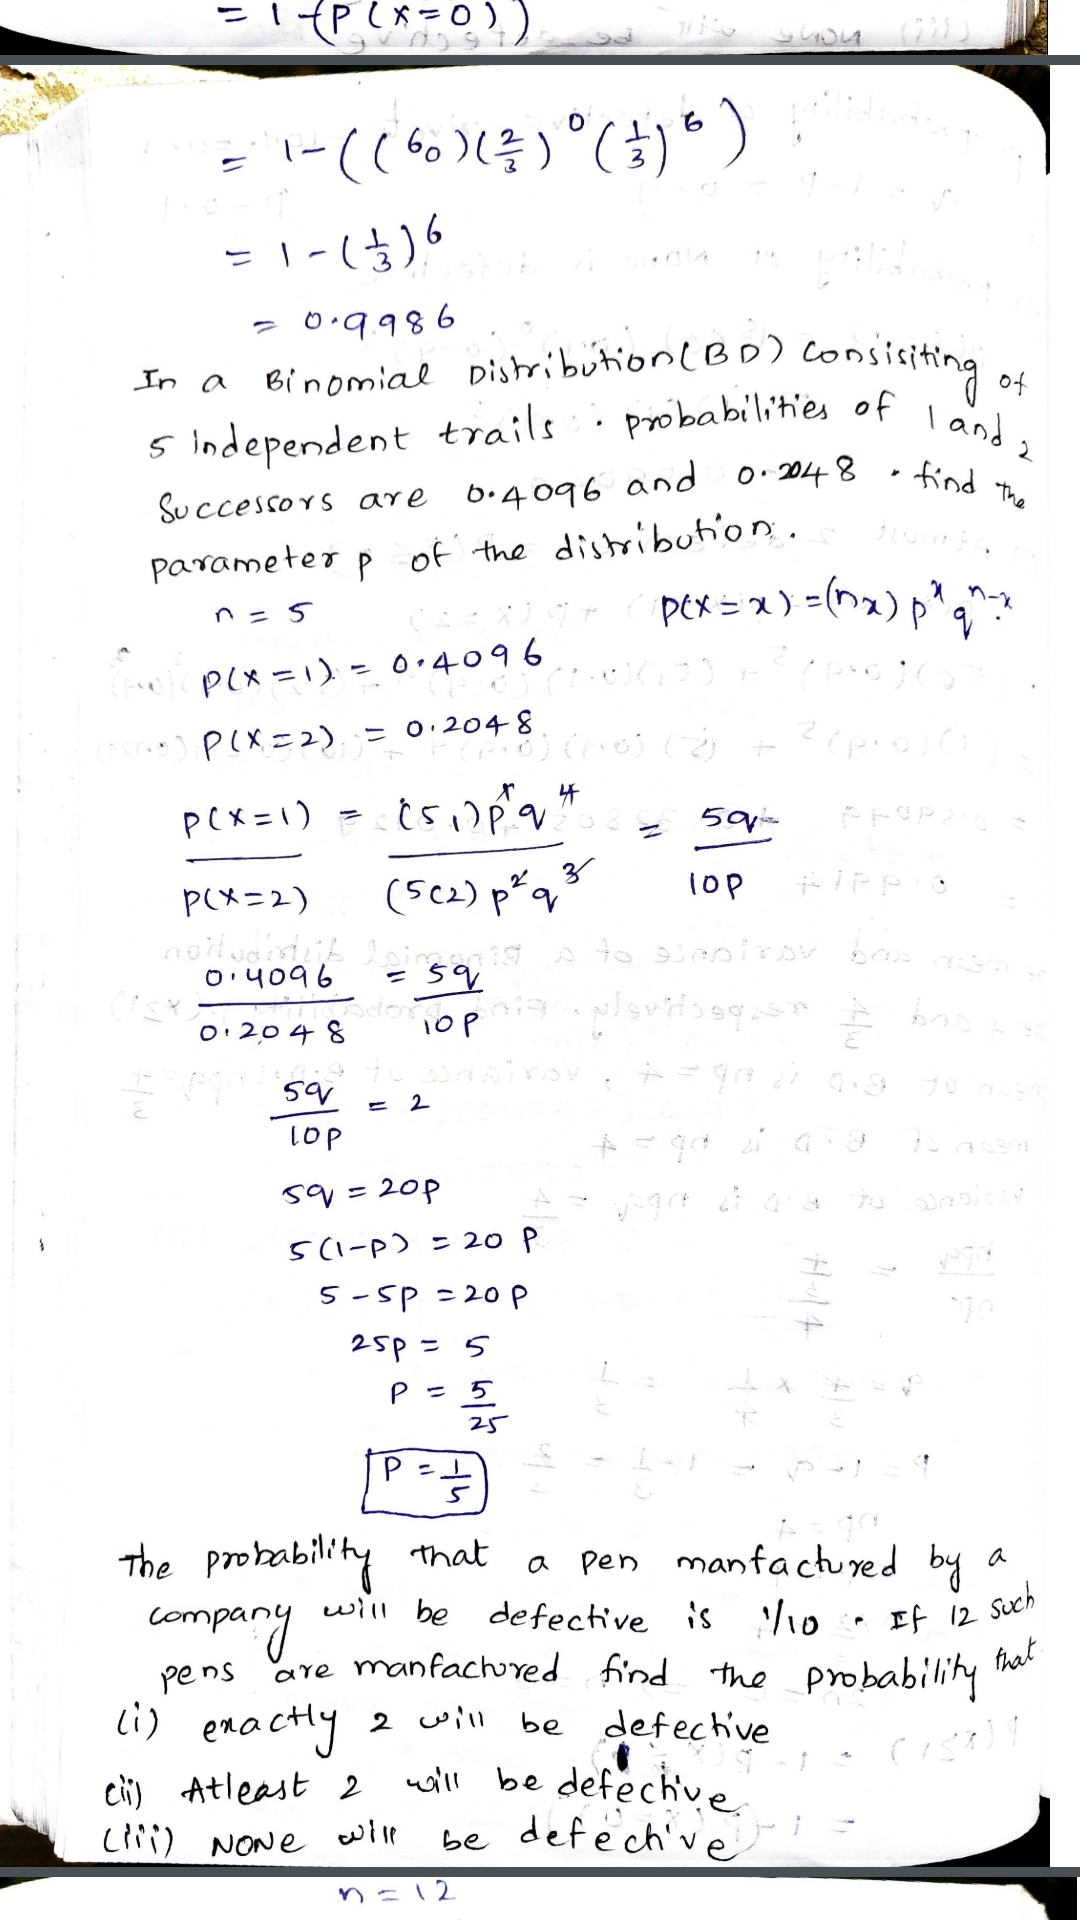 = 1-(P(x=0))
= 1-((6₀)(2/3)⁰(1/3)⁶)
= 1-(1/3)⁶
= 0.9986
In a Binomial Distribution(BD) consisiting of
5 independent trails . probabilities of 1 and 2
Successors are 0.4096 and 0.2048 . find the
parameter p of the distribution.
n = 5 P(X=x)=(nx) pˣ qⁿ⁻ˣ
P(X=1) = 0.4096
P(X=2) = 0.2048
P(X=1)/P(X=2) = (5₁)p¹q⁴/(5c2)p²q³ = 5q/10p
0.4096/0.2048 = 5q/10p
5q/10p = 2
5q = 20p
5(1-p) = 20 p
5-5p = 20p
25p = 5
P = 5/25
P = 1/5
The probability that a pen manfactured by a
company will be defective is 1/10 . If 12 such
pens are manfactured find the probability that
(i) exactly 2 will be defective
(ii) Atleast 2 will be defective
(iii) NONE will be defective
n = 12